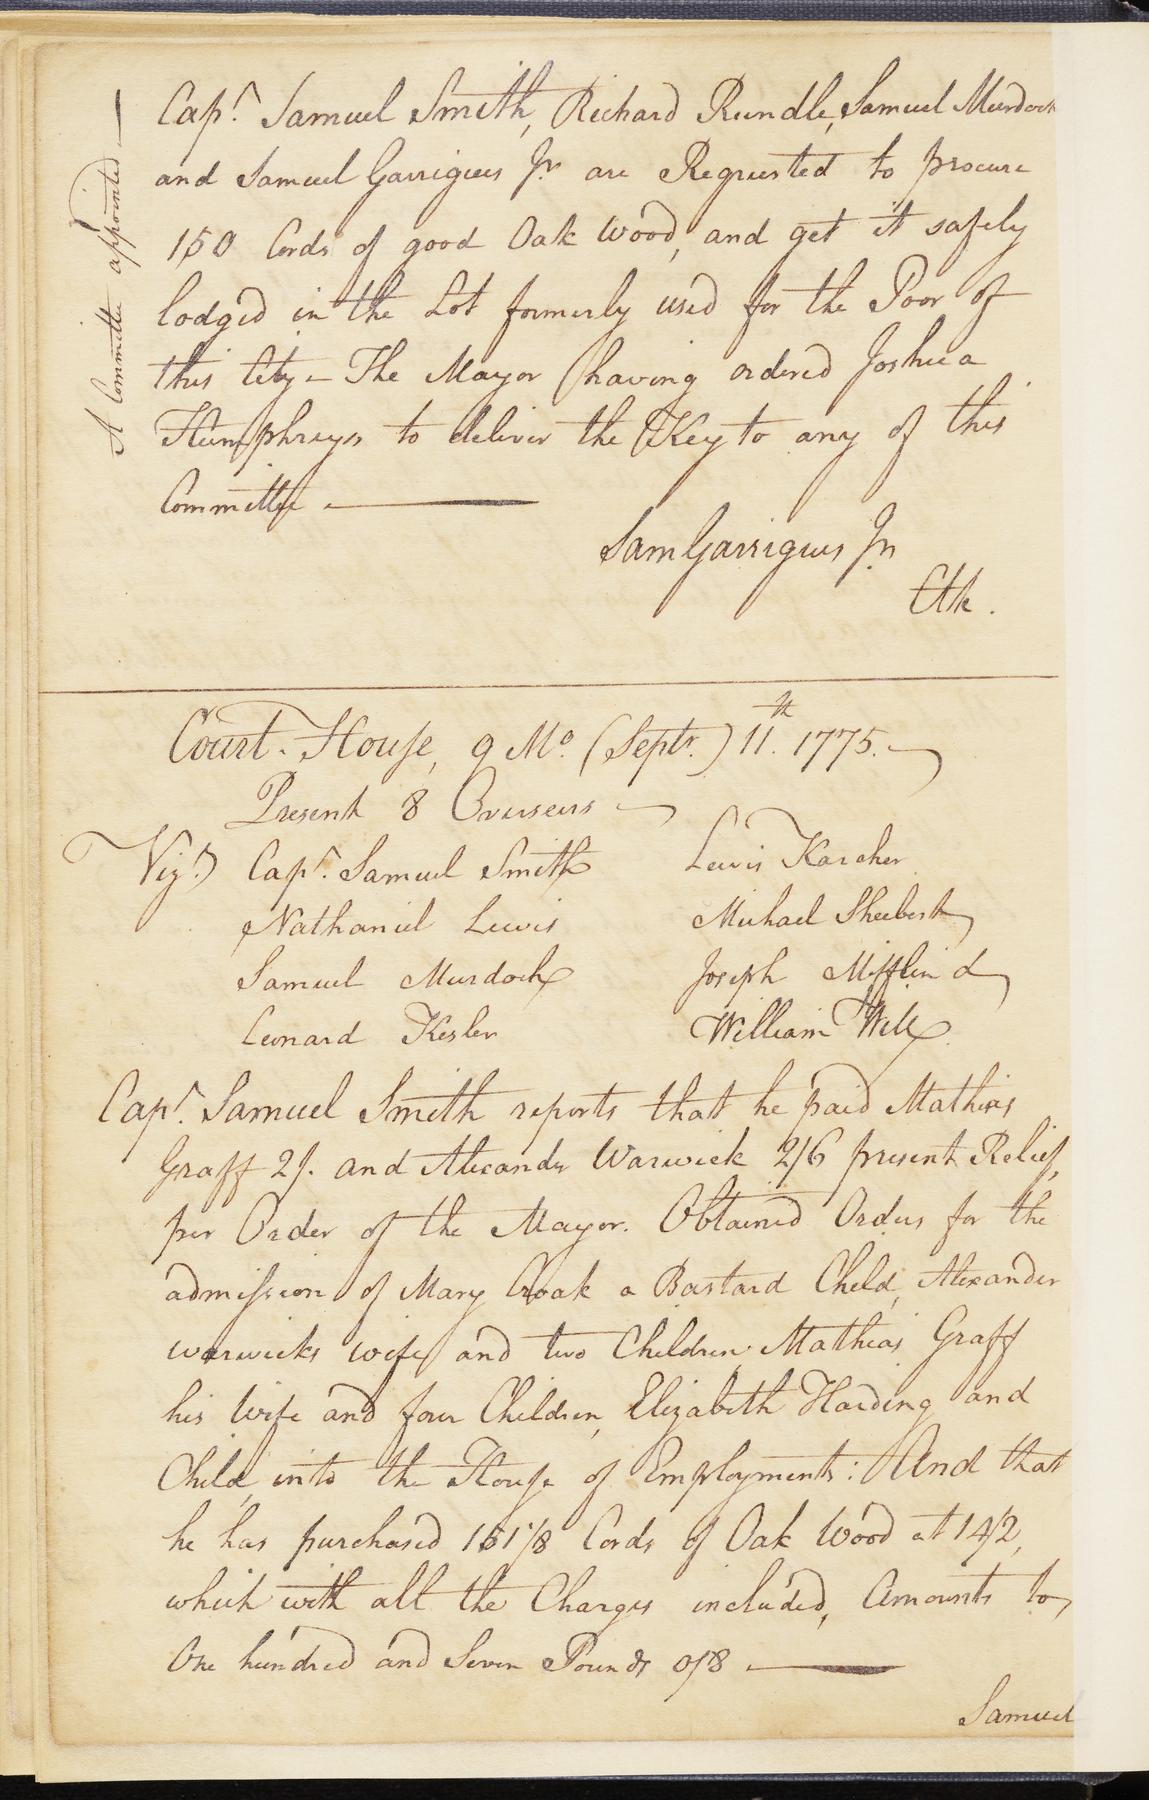 A Committe appointed —
Capt. Samuel Smith, Richard Rundle, Samuel Murdock
and Samuel Garrigues Jr. are Requested to procure
150 Cords of good Oak Wood, and get it safely
lodged in the Lot formerly used for the Poor of
this City – The Mayor having ordered Joshua
Humphreys to deliver the Key to any of this
Committee —
Sam Garrigues Jn
Clk.
Court House, 9 Mo. (Septr.) 11th. 1775.
Present 8 Overseers
Vizt. Capt. Samuel Smith Lewis Karcher
Nathaniel Lewis Michael Shubert
Samuel Murdock Joseph Mifflin &
Leonard Kesler William Will
Capt. Samuel Smith reports that he paid Mathias
Graff 2/. and Alexander Warwick 2/6 present Relief,
per Order of the Mayor. Obtained Orders for the
admission of Mary Croak a Bastard Child, Alexander
warwicks wife and two Children, Mathias Graff
his Wife and four Children, Elizabeth Harding and
Child, into the House of Employment: And that
he has purchased 151 1/8 Cords of Oak Wood at 14/2,
which with all the Charges included, Amounts to,
One hundred and Seven Pounds 0/8 —
Samuel